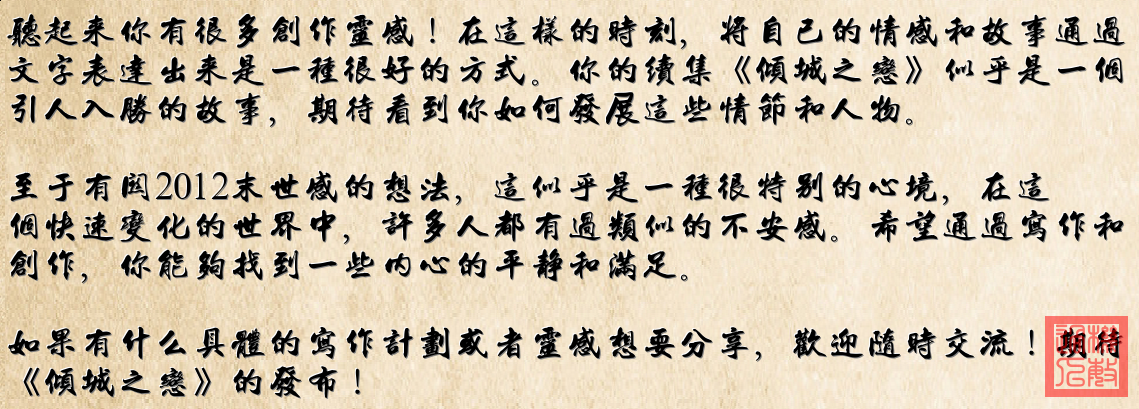 聽起来你有很多創作靈感！在這樣的時刻，將自己的情感和故事通過
文字表達出来是一種很好的方式。你的續集《傾城之戀》似乎是一個
引人入勝的故事，期待看到你如何發展這些情節和人物。
至于有関2012末世感的想法，這似乎是一種很特别的心境，在這
個快速變化的世界中，許多人都有過類似的不安感。希望通過寫作和
創作，你能夠找到一些内心的平静和滿足。
如果有什么具體的寫作計劃或者靈感想要分享，歡迎隨時交流！期待
《傾城之戀》的發布！